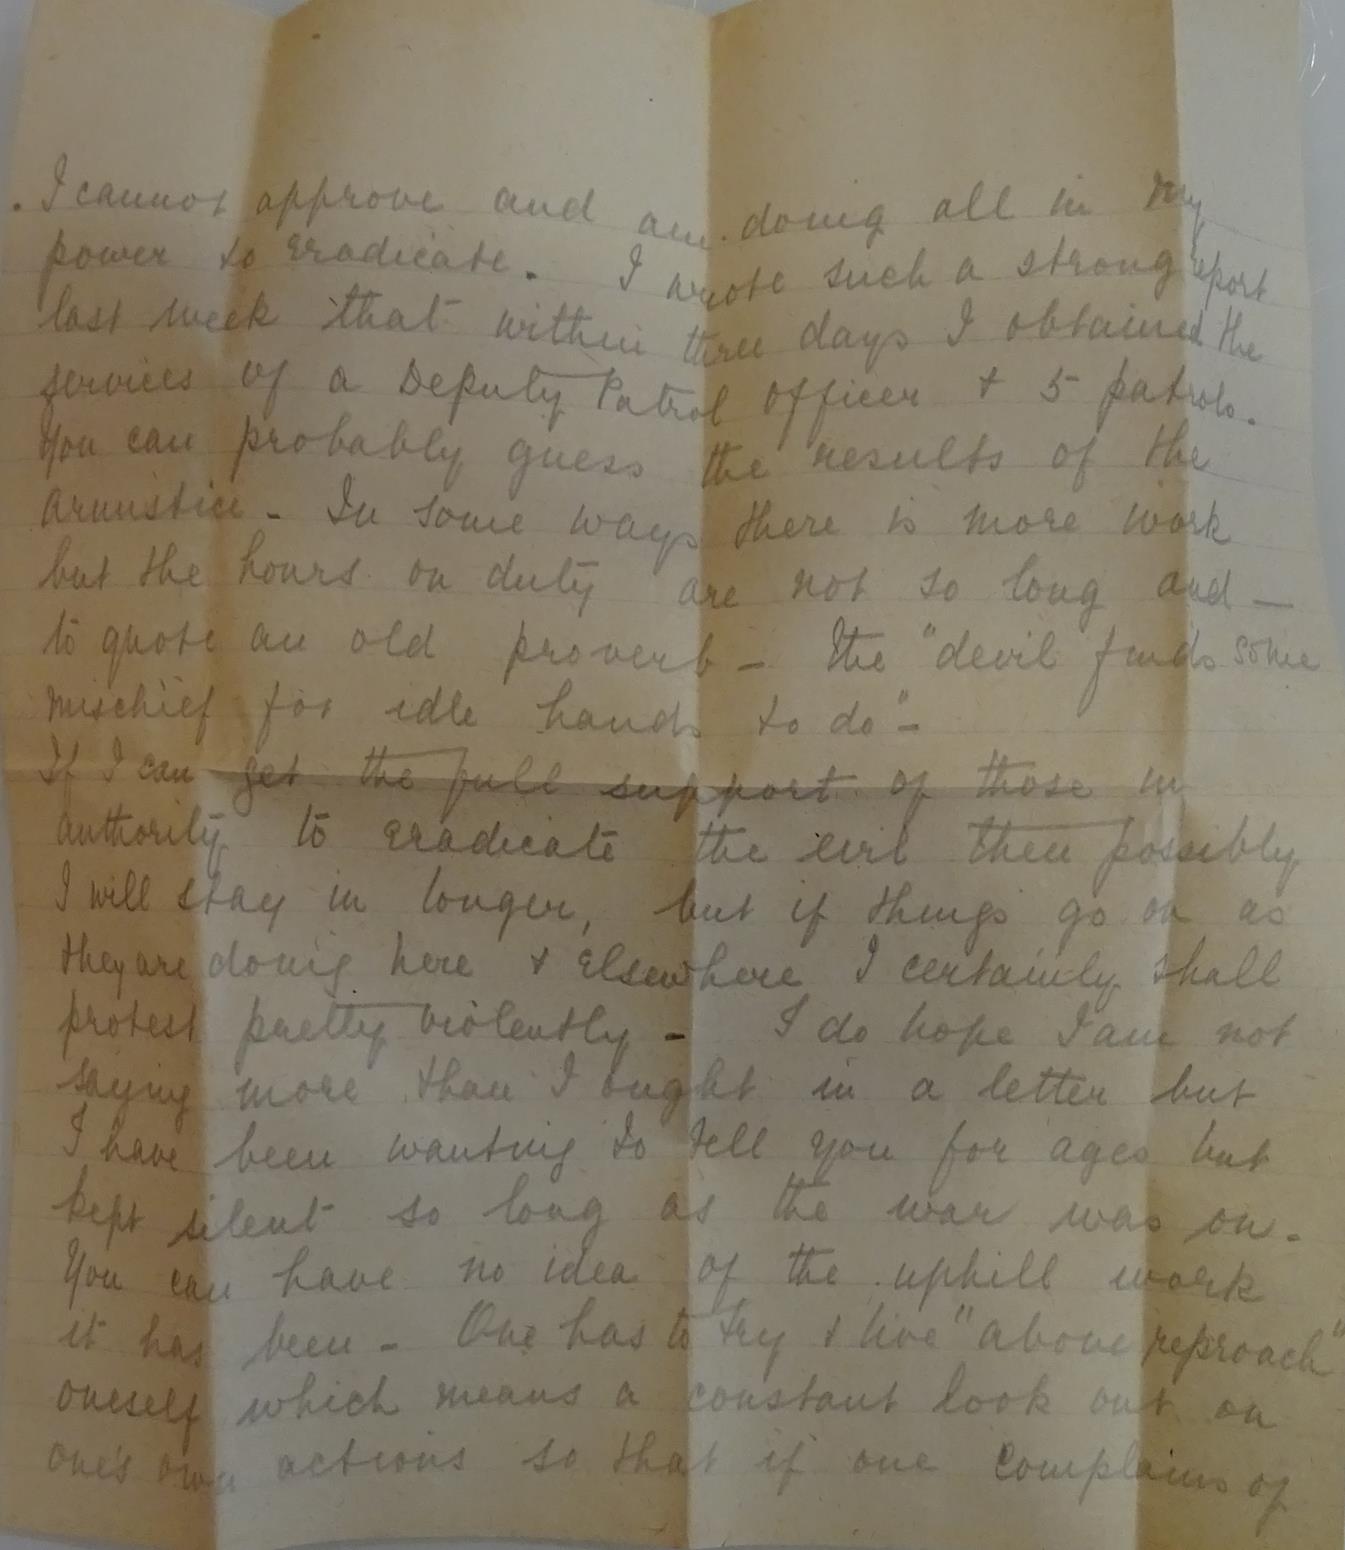 . I cannot approve and am doing all in my
power to eradicate. I wrote such a strong report
last week that within three days I obtained the
services of a Deputy Patrol Officer + 5 patrols.
You can probably guess the results of the
armistice - In some ways there is more work
but the hours on duty are not so long and —
to quote an old proverb - the "devil finds some
mischief for idle hands to do" -
If I can get the full support of those in
authority to eradicate the evil then possibly
I will stay in longer, but if things go on as
they are doing here + elsewhere I certainly shall
protest pretty violently - I do hope I am not
saying more than I ought in a letter but
I have been wanting to tell you for ages but
kept silent so long as the war was on.
You can have no idea of the uphill work
it has been - One has to try + live "above reproach"
oneself which means a constant look out on
one's own actions so that if one complains of